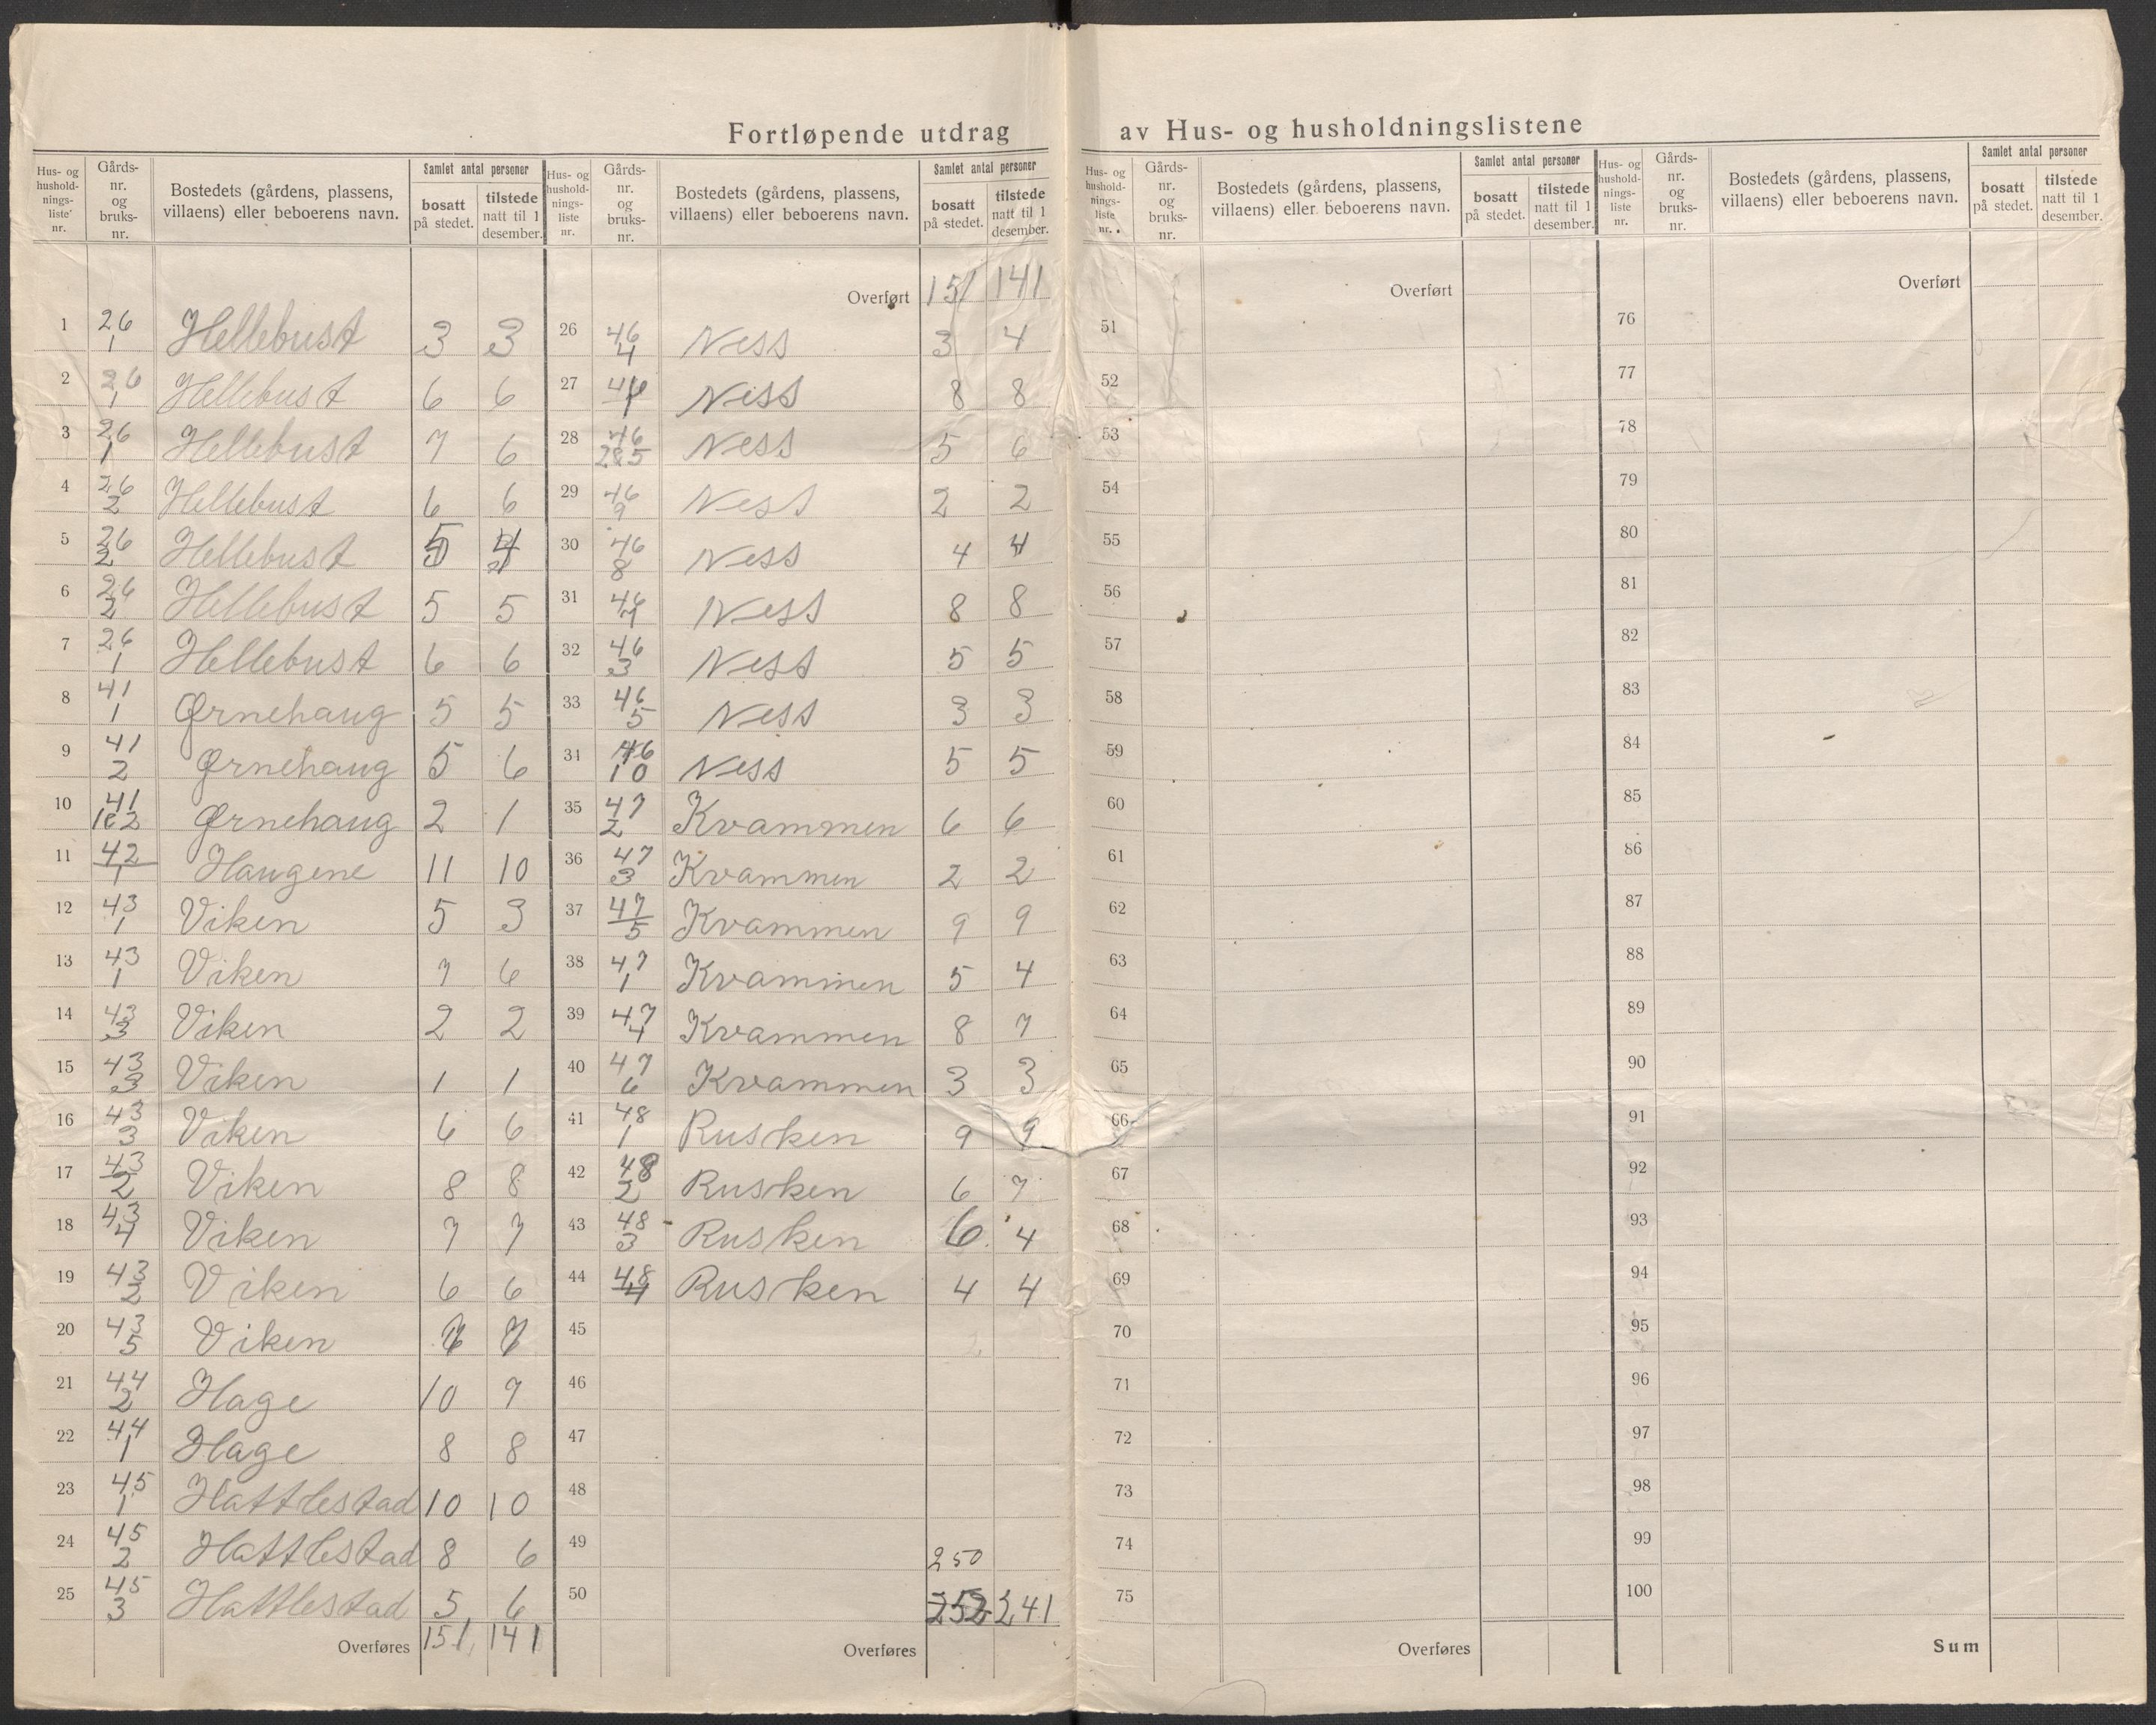 Fortløpende utdrag av Hus- og husholdningslistene
Hus- og hushold- nings- liste nr. | Gårds- nr. og bruks- nr. | Bostedets (gårdens, plassens, villaens) eller beboerens navn. | Samlet antal personer | bosatt på stedet. | tilstede natt til 1 desember.
1 26/1 Hellebust 3 3
2 26/1 Hellebust 6 6
3 26/1 Hellebust 7 6
4 26/2 Hellebust 6 6
5 26/2 Hellebust 5 4
6 26/2 Hellebust 5 5
7 26/1 Hellebust 6 6
8 41/1 Ørnehaug 5 5
9 41/2 Ørnehaug 5 6
10 41/1&2 Ørnehaug 2 1
11 42/1 Haugene 11 10
12 43/1 Viken 5 3
13 43/1 Viken 7 6
14 43/3 Viken 2 2
15 43/3 Viken 1 1
16 43/3 Viken 6 6
17 43/2 Viken 8 8
18 43/4 Viken 7 7
19 43/2 Viken 6 6
20 43/5 Viken
21 44/2 Hage 10 9
22 44/1 Hage 8 8
23 45/1 Hattlestad 10 10
24 45/2 Hattlestad 8 6
25 45/3 Hattlestad 5 6
Overføres 151 141
Hus- og hushold- nings- liste nr. | Gårds- nr. og bruks- nr. | Bostedets (gårdens, plassens, villaens) eller beboerens navn. | Samlet antal personer | bosatt på stedet. | tilstede natt til 1 desember.
Overført 151 141
26 46/4 Ness 3 4
27 46/1 Ness 8 8
28 46/2&5 Ness 5 6
29 46/9 Ness 2 2
30 46/8 Ness 4 4
31 46/7 Ness 8 8
32 46/3 Ness 5 5
33 46/5 Ness 3 3
34 46/10 Ness 5 5
35 47/2 Kvammen 6 6
36 47/3 Kvammen 2 2
37 47/5 Kvammen 9 9
38 47/1 Kvammen 5 4
39 47/4 Kvammen 8 7
40 47/6 Kvammen 3 3
41 48/1 Rusken 9 9
42 48/2 Rusken 6 7
43 48/3 Rusken 6 4
44 48/4 Rusken 4 4
45
46
47
48
49 250
50 252 241
Overføres
Hus- og hushold- nings- liste nr. | Gårds- nr. og bruks- nr. | Bostedets (gårdens, plassens, villaens) eller beboerens navn. | Samlet antal personer | bosatt på stedet. | tilstede natt til 1 desember.
Overført
51
52
53
54
55
56
57
58
59
60
61
62
63
64
65
66
67
68
69
70
71
72
73
74
75
Overføres
Hus- og hushold- nings- liste nr. | Gårds- nr. og bruks- nr. | Bostedets (gårdens, plassens, villaens) eller beboerens navn. | Samlet antal personer | bosatt på stedet. | tilstede natt til 1 desember.
Overført
76
77
78
79
80
81
82
83
84
85
86
87
88
89
90
91
92
93
94
95
96
97
98
99
100
Sum